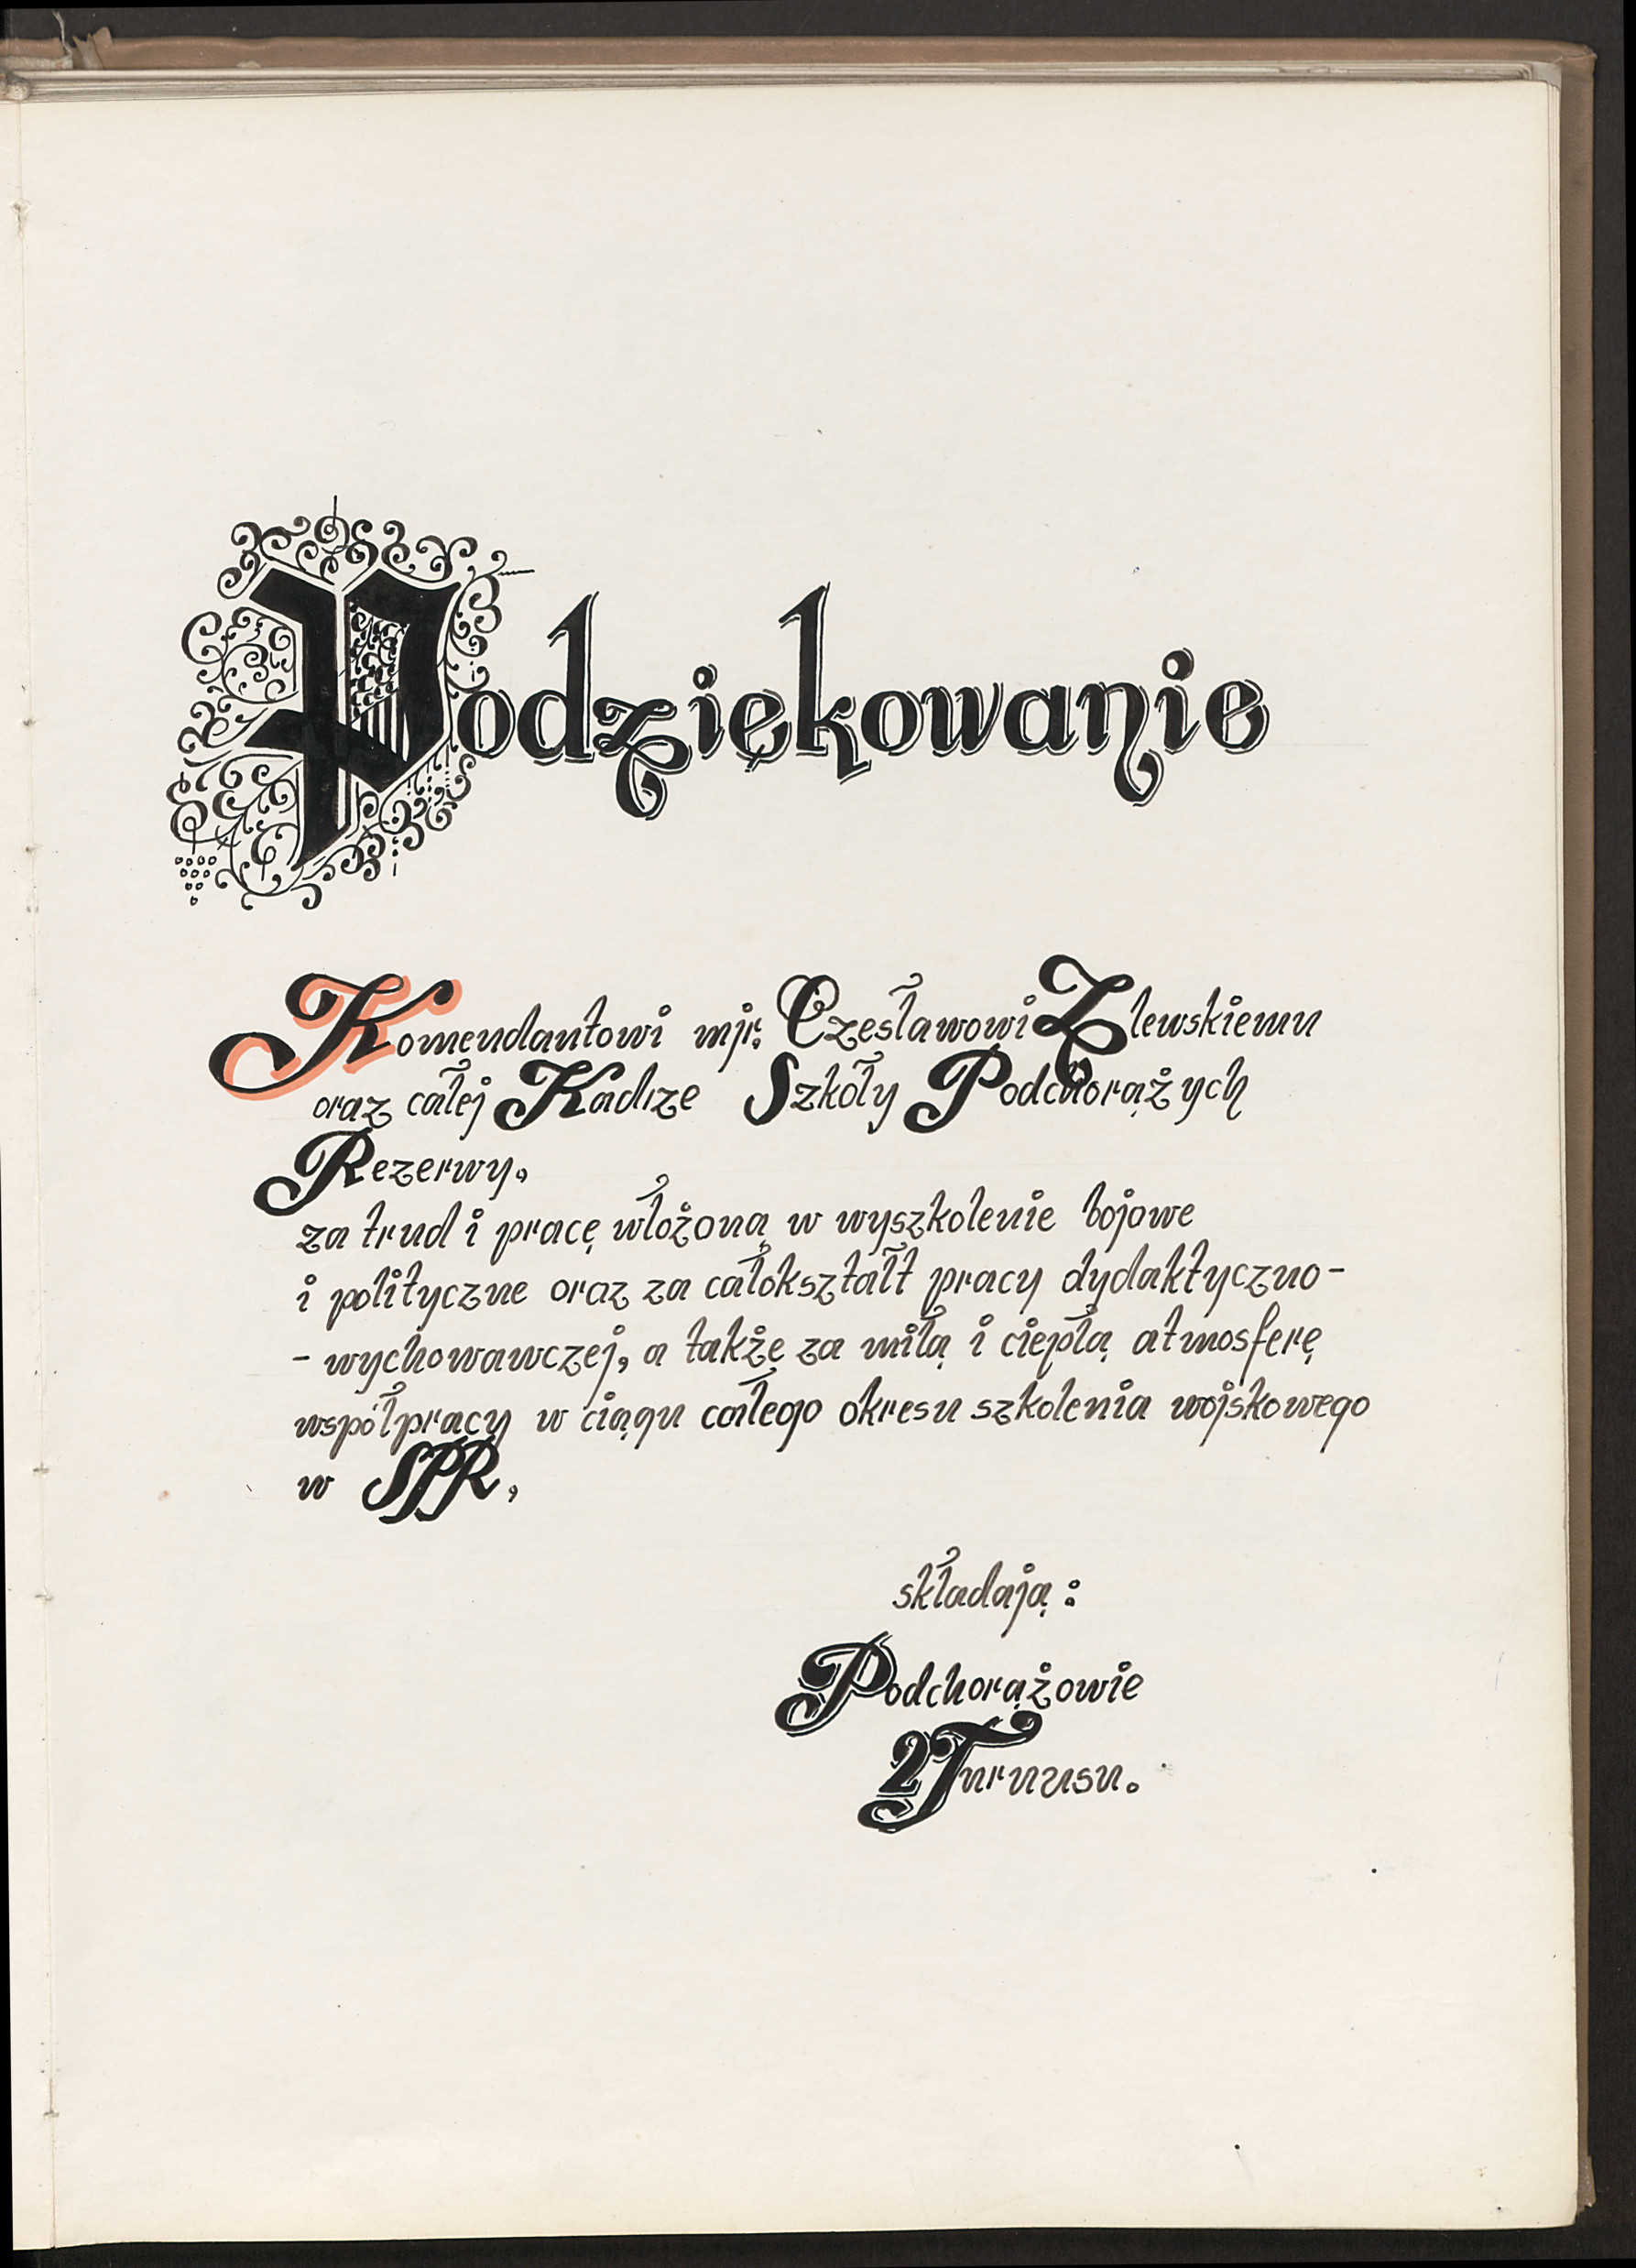 Podziękowanie
Komendantowi mjr. Czesławowi Zlewskiemu
oraz całej Kadrze Szkoły Podchorążych
Rezerwy,
za trud i pracę włożoną w wyszkolenie bojowe
i polityczne oraz za całokształt pracy dydaktyczno-
- wychowawczej, a także za miłą i ciepłą atmosferę
współpracy w ciągu całego okresu szkolenia wojskowego
w SPR,
składają:
Podchorążowie
2 Turnusu.